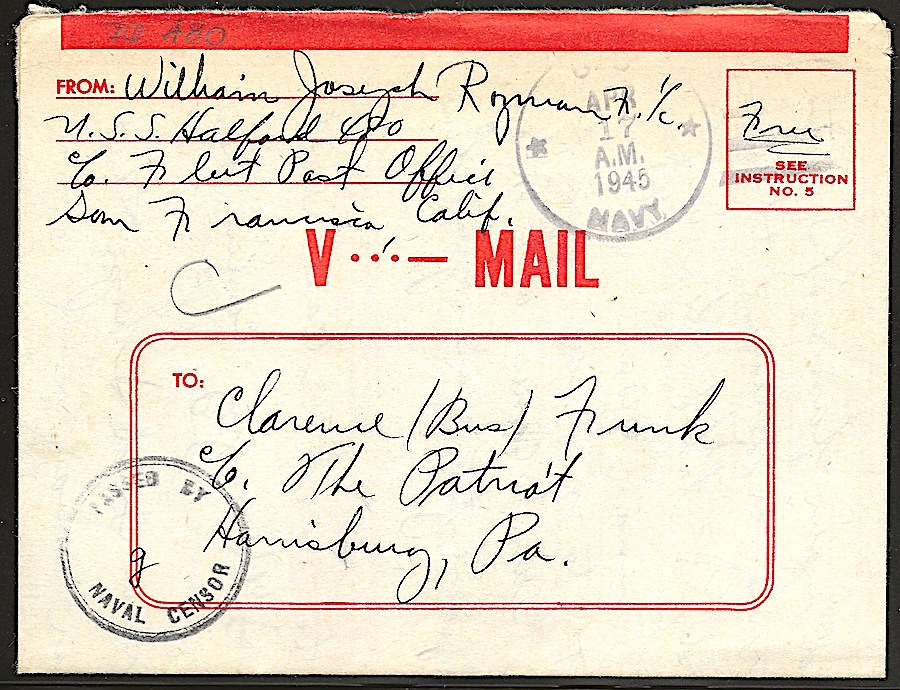 FROM: William Joseph Rozman F. 1/c.
U.S.S. Halford 480
c/o. Fleet Post Office
San Francisco Calif.
APR
17
A.M.
1945
NAVY
Free
SEE
INSTRUCTION
NO. 5
V ...— MAIL
TO:
Clarence (Bus) Funk
c/o. The Patriot
Harrisburg, Pa.
PASSED BY
NAVAL CENSOR